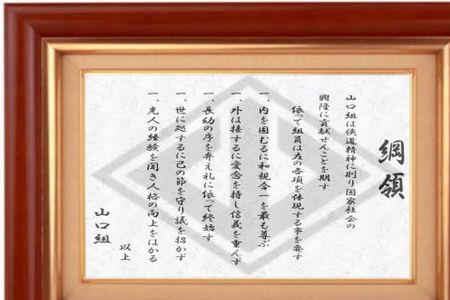 綱領
山口組は侠道精神に則り国家社会の
興隆に貢献せんことを期す
依って組員は左の各項を体現する事を要す
一、内を固むるに和親合一を最も尊ぶ
一、外は接するに愛念を持し信義を重んず
一、長幼の序を弁え礼に依って終始す
一、世に処するに己の節を守り譏を招かず
一、先人の経験を聞き人格の向上をはかる
以上
山口組